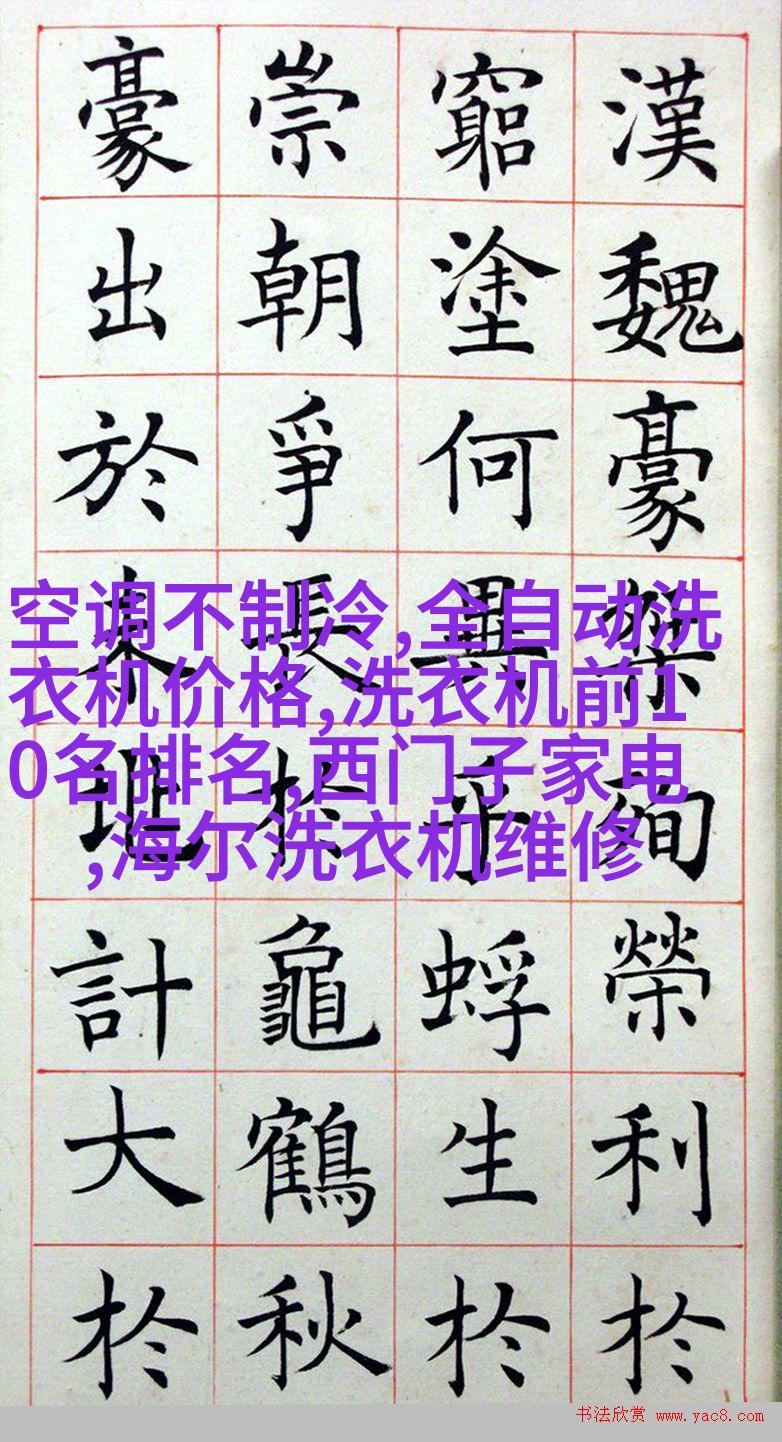 漢魏豪桀殉榮利於
窮塗何異乎蜉生於
崇朝爭長於龜鶴秋
豪出於計大於
空调不制冷,全自动洗
衣机价格,洗衣机前1
0名排名,西门子家电
,海尔洗衣机维修
书法欣赏 www.yac8.com